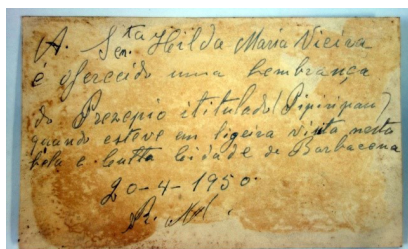 A. Senrta Hilda Maria Vieira
é oferecido uma lembrança
do Prezepio ititulado (Pipiripau)
quando esteve em ligeira visita nesta
bela e Cutta Cidade de Barbacena
20-4-1950.
R.